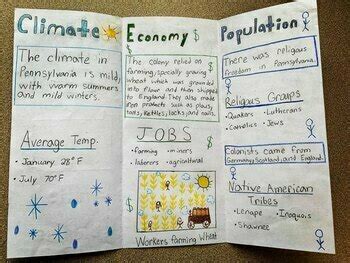 Climate
The climate in
Pennsylvania is mild,
with warm summers
and mild winters.
Average Temp.
• January 28°F
• July 70°F
Economy
The colony relied on
farming, specially growing
wheat which was grounded
into flour and then shipped
to England. They also made
iron products such as plows,
tools, Kettles, locks, and nails.
JOBS
• farming • miners
• laborers • agricultural
Workers farming Wheat
Population
There was religous
freedom in Pennsylvania.
Religous Groups
• Quakers • Lutherans
• Catholics • Jews
Colonists came from
Germany, Scotland, and England.
Native American
Tribes
• Lenape • Iroquois
• Shawnee